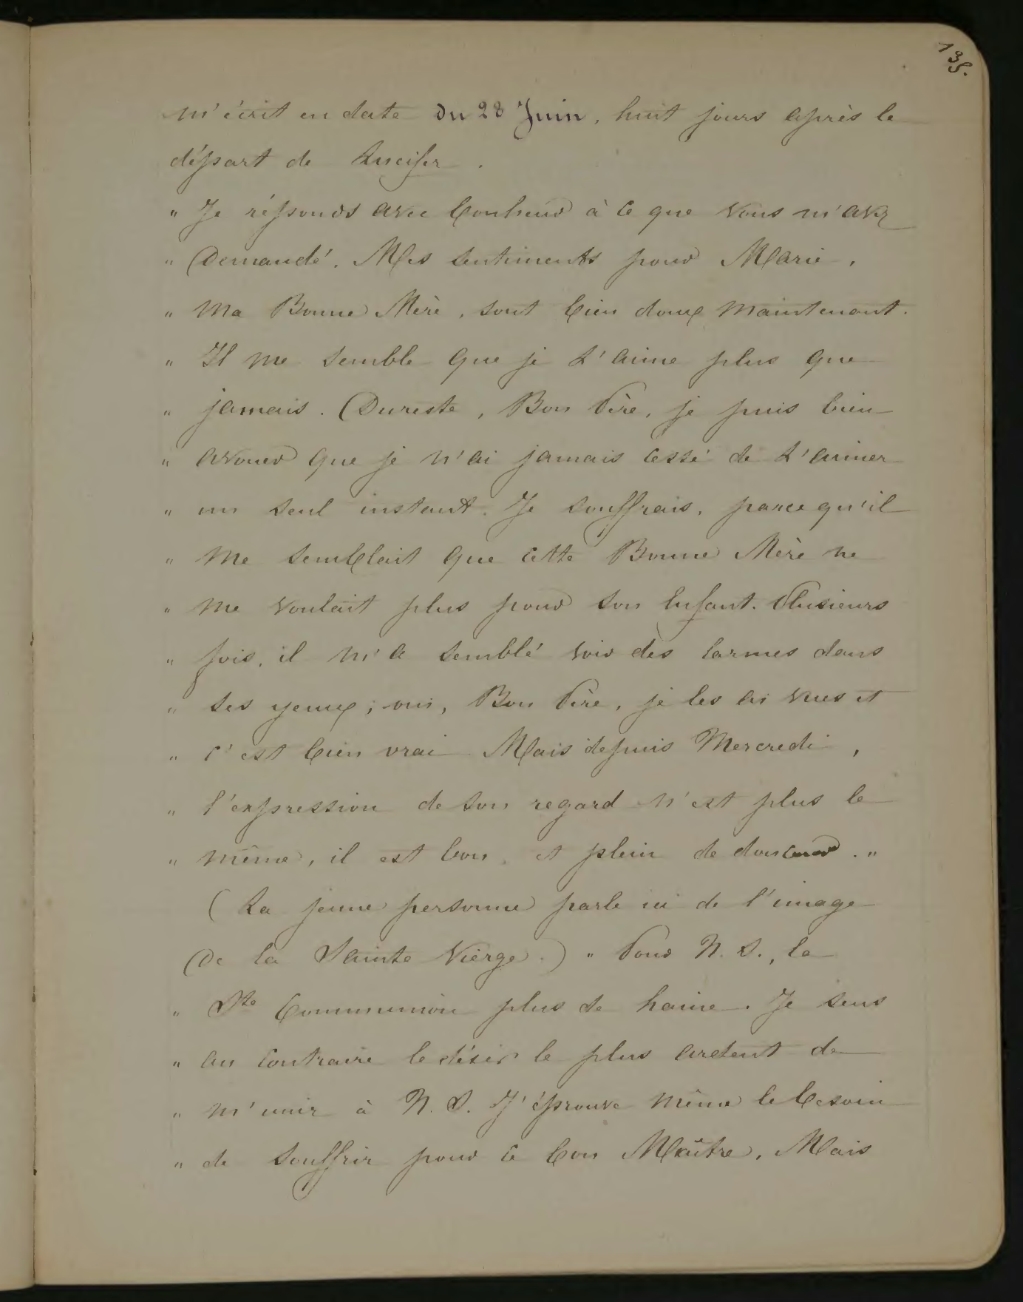 135.
m'écrit en date du 28 Juin, huit jours après le
départ de Lucifer.
" Je réponds avec bonheur à ce que vous m'avez
" Demandé. Mes sentiments pour Marie,
" Ma Bonne Mère, sont bien doux maintenant.
" Il me semble que je L'aime plus que
" jamais. Dureste, Bon Père, je puis bien
" avouer que je n'ai jamais cessé de L'aimer
" un seul instant. Je souffrais, parcequ'il
" me semblait que cette Bonne Mère ne
" me voulait plus pour son Enfant. Plusieurs
" fois, il m'a semblé voir des larmes dans
" ses yeux ; oui, Bon Père, je les ai vues et
" c'est bien vrai Mais depuis Mercredi,
" l'expression de son regard n'est plus le
" même, il est bon, et plein de douceur. "
( La jeune personne parle ici de l'image
De la Sainte Vierge. ) " Pour N. S., la
" Ste Communion plus de haine. Je sens
" au contraire le désir le plus ardent de
" m'unir à N. S. J'éprouve même le besoin
" de souffrir pour ce bon Maître, Mais